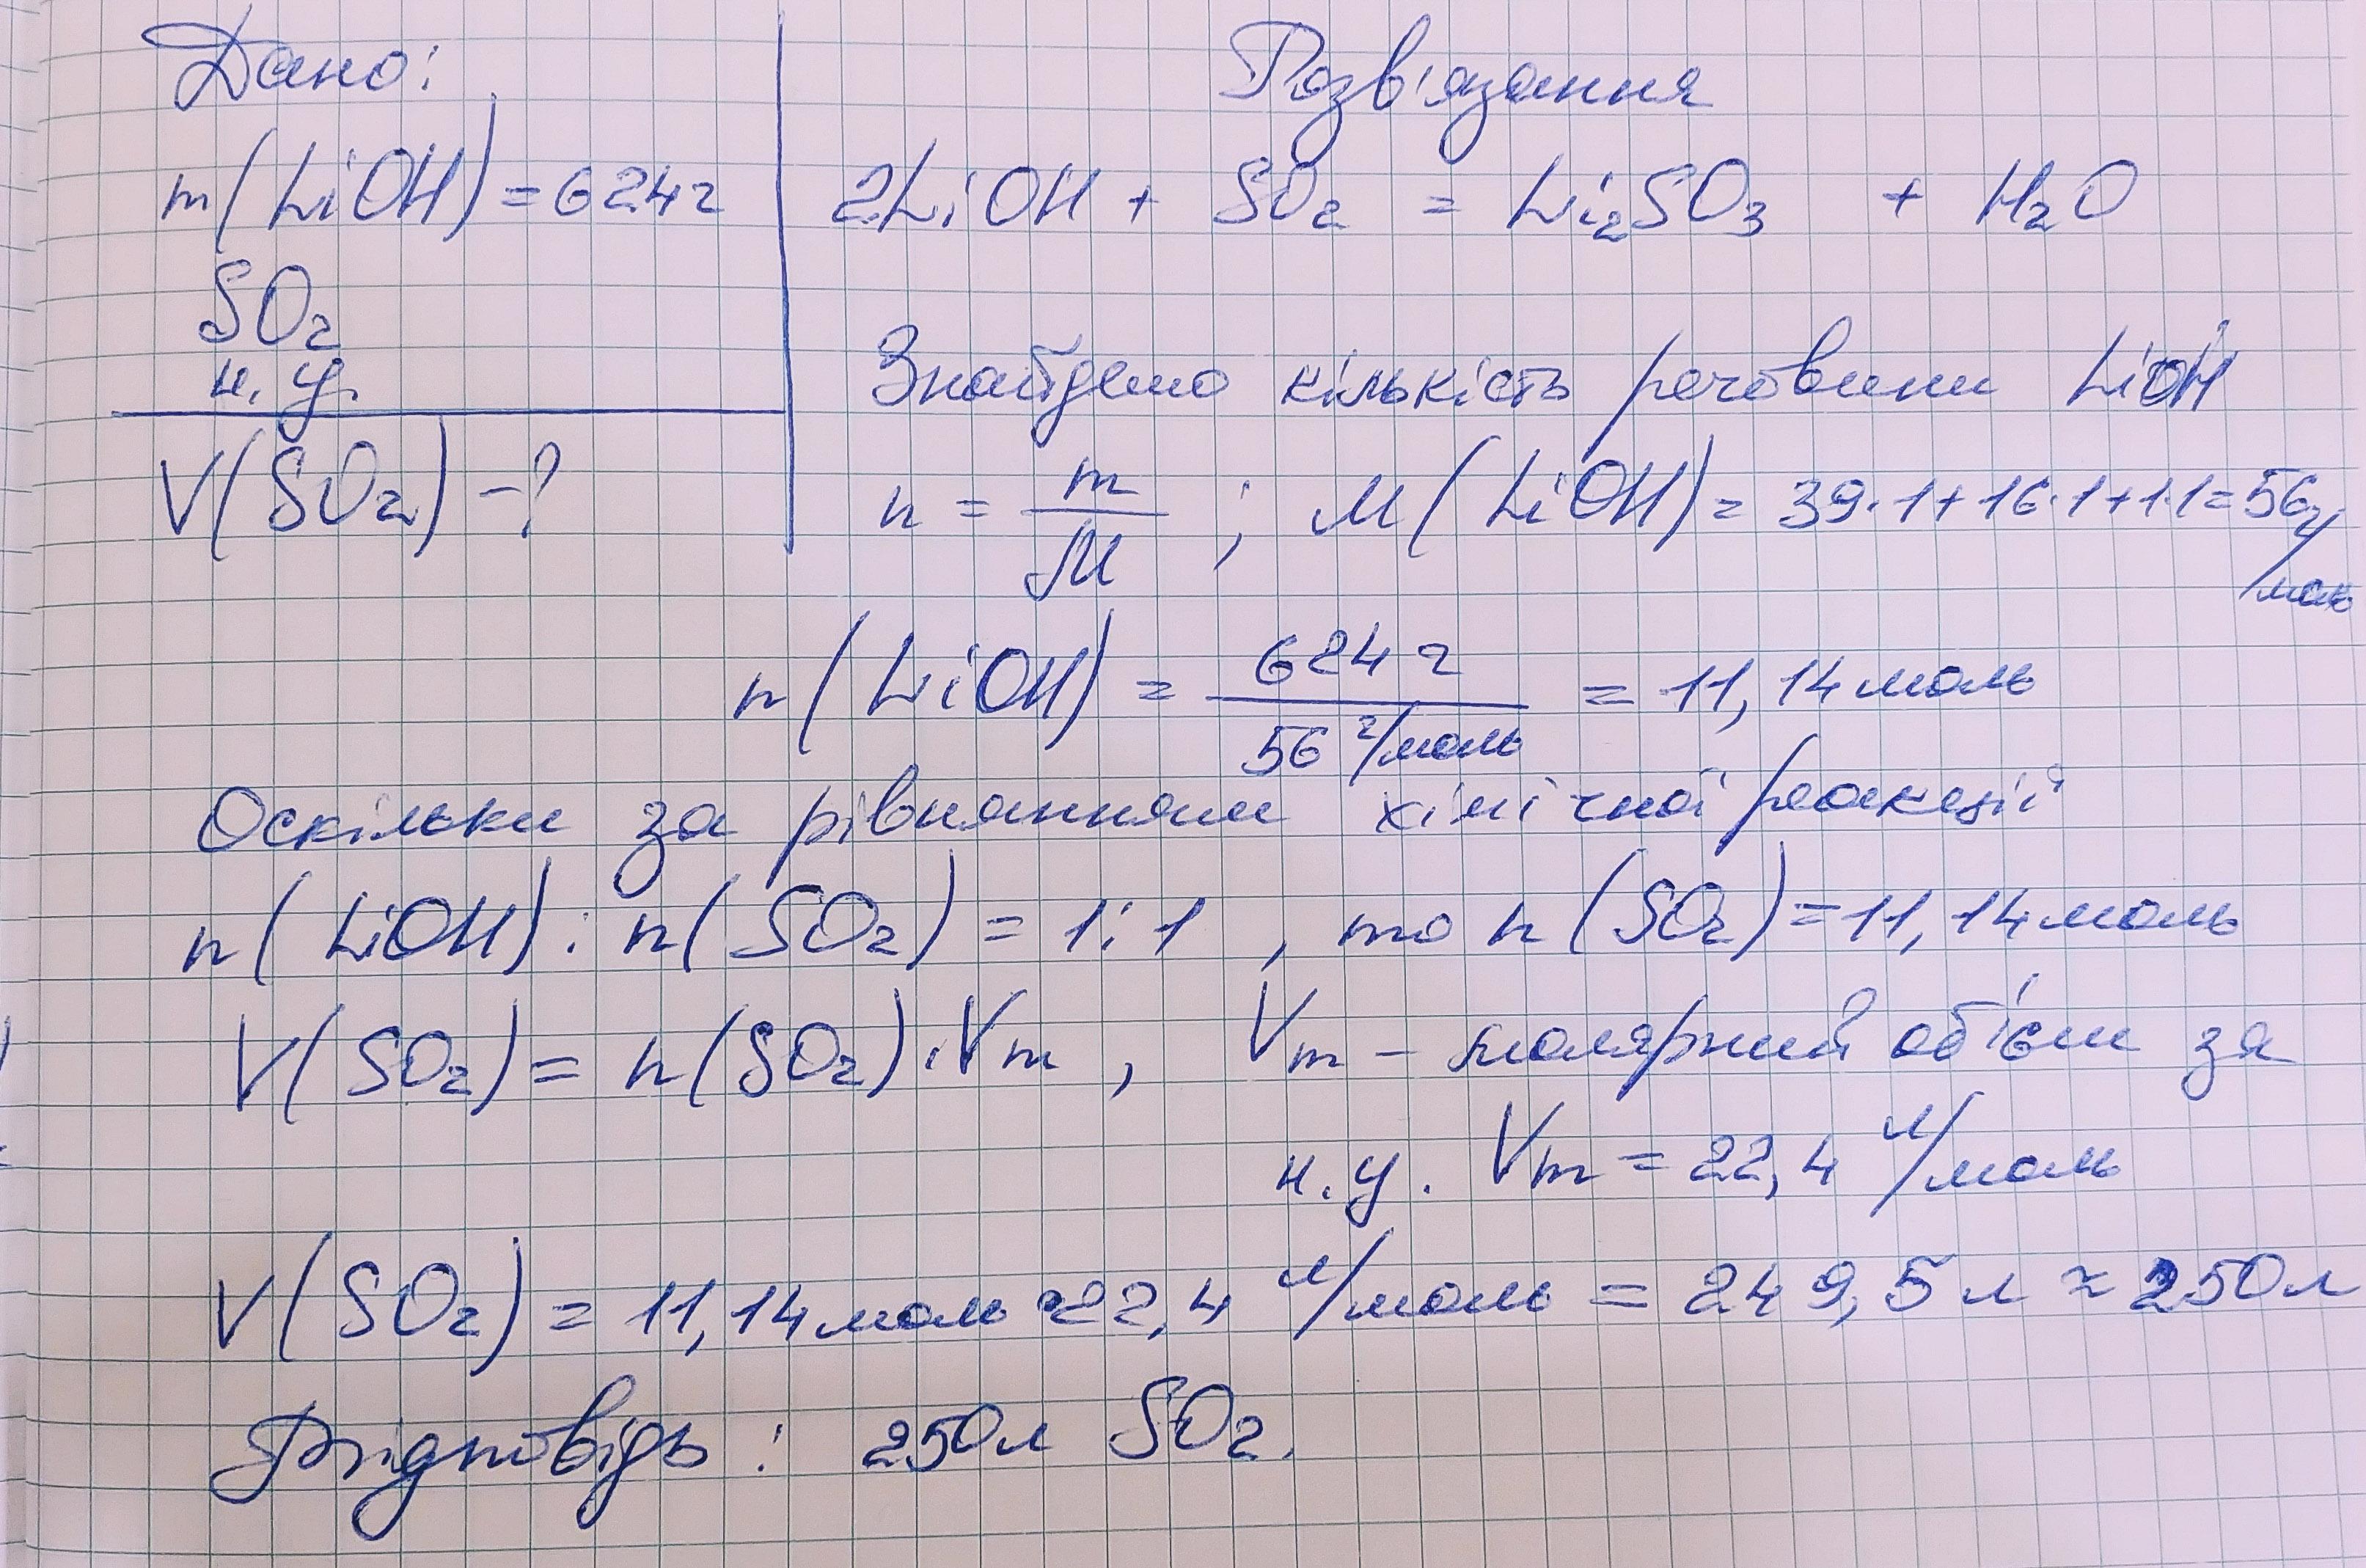 Дано:
m(LiOH)=624г
SO₂
н.у.
V(SO₂)-?
Розв'язання
2LiOH + SO₂ = Li₂SO₃ + H₂O
Знайдемо кількість речовини LiOH
n = m/M ; M(LiOH)= 39·1+16·1+1·1=56г/моль
n(LiOH) = 624 г / 56 г/моль = 11,14 моль
Оскільки за рівнянням хімічної реакції
n(LiOH):n(SO₂)=1:1 , то n(SO₂)=11,14 моль
V(SO₂)= n(SO₂)·Vm , Vm – молярний об'єм за
н.у. Vm = 22,4 л/моль
V(SO₂)= 11,14 моль · 22,4 л/моль = 249,5 л ≈ 250 л
Відповідь : 250л SO₂.